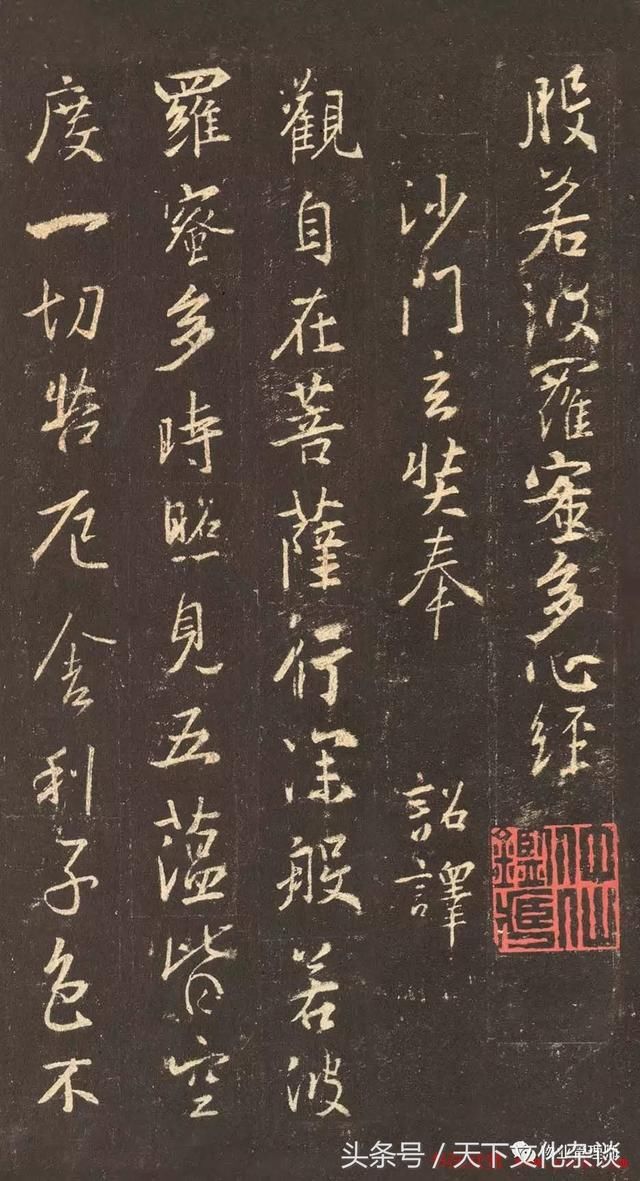 般若波羅蜜多心經
沙門玄奘奉 詔譯
觀自在菩薩行深般若波
羅蜜多時照見五蘊皆空
度一切苦厄舍利子色不
头条号 / 天下文化杂谈